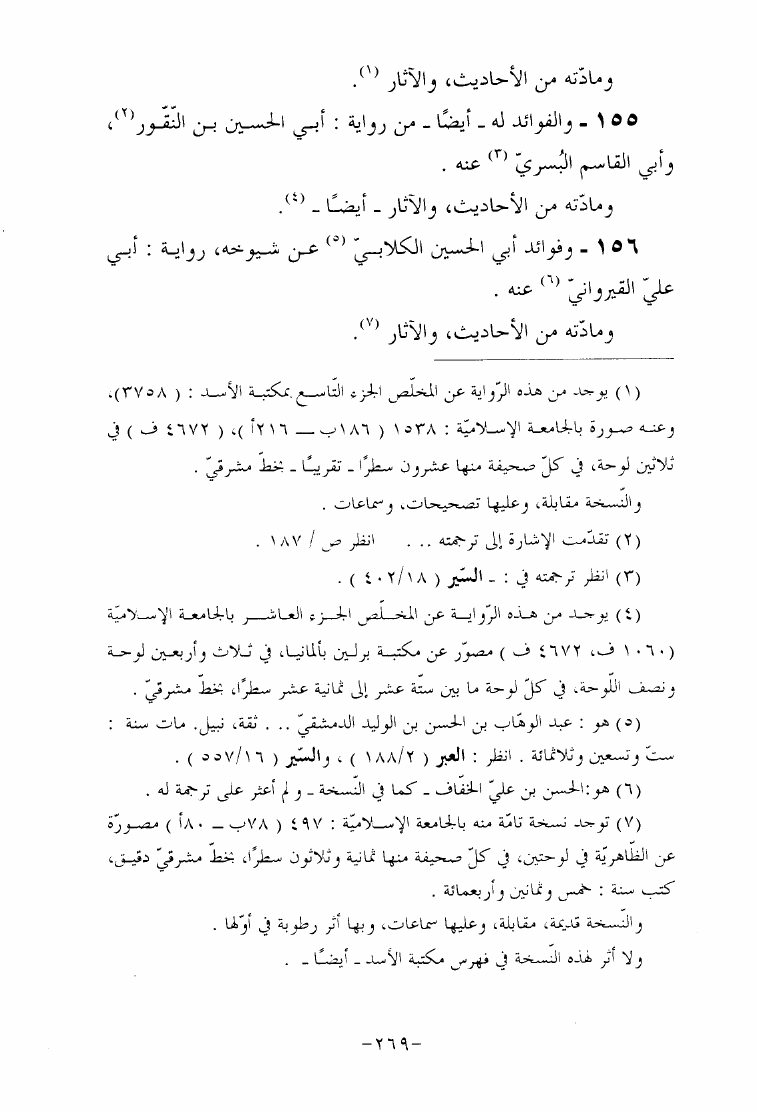 ومادّته من الأحاديث، والآثار (١).
١٥٥ - والفوائد له - أيضًا - من رواية : أبي الحسين بن النّقّور(٢)،
وأبي القاسم البُسريّ (٣) عنه .
ومادّته من الأحاديث، والآثار - أيضًا - (٤).
١٥٦ - وفوائد أبي الحسين الكلابيّ (٥) عن شيوخه، رواية : أبي
عليّ القيروانيّ (٦) عنه .
ومادّته من الأحاديث، والآثار (٧).
(١) يوجد من هذه الرّواية عن المخلّص الجزء التّاسع بمكتبة الأسد : ( ٣٧٥٨)،
وعنه صورة بالجامعة الإسلاميّة : ١٥٣٨ ( ١٨٦ب — ٢١٦أ )، ( ٤٦٧٢ ف ) في
ثلاثين لوحة، في كلّ صحيفة منها عشرون سطرًا - تقريبًا - بخطّ مشرقيّ .
والنّسخة مقابلة، وعليها تصحيحات، وسماعات .
(٢) تقدّمت الإشارة إلى ترجمته ... انظر ص / ١٨٧ .
(٣) انظر ترجمته في : - السّير ( ٤٠٢/١٨ ) .
(٤) يوجد من هذه الرّواية عن المخلّص الجزء العاشر بالجامعة الإسلاميّة
(١٠٦٠ ف، ٤٦٧٢ ف ) مصوّر عن مكتبة برلين بألمانيا، في ثلاث وأربعين لوحة
ونصف اللّوحة، في كلّ لوحة ما بين ستّة عشر إلى ثمانية عشر سطرًا، بخطّ مشرقيّ .
(٥) هو : عبد الوهّاب بن الحسن بن الوليد الدمشقيّ .. . ثقة، نبيل. مات سنة :
ستّ وتسعين وثلاثمائة . انظر : العبر ( ١٨٨/٢ ) ، والسّير ( ٥٥٧/١٦ ) .
(٦) هو:الحسن بن عليّ الخفّاف - كما في النّسخة - و لم أعثر على ترجمة له .
(٧) توجد نسخة تامّة منه بالجامعة الإسلاميّة : ٤٩٧ ( ٧٨ب — ٨٠أ ) مصورّة
عن الظّاهريّة في لوحتين، في كلّ صحيفة منها ثمانية وثلاثون سطرًا، بخطّ مشرقيّ دقيق،
كتب سنة : خمس وثمانين وأربعمائة .
والنّسخة قديمة، مقابلة، وعليها سماعات، وبها أثر رطوبة في أوّلها .
ولا أثر لهذه النّسخة في فهرس مكتبة الأسد - أيضًا - .
-٢٦٩-